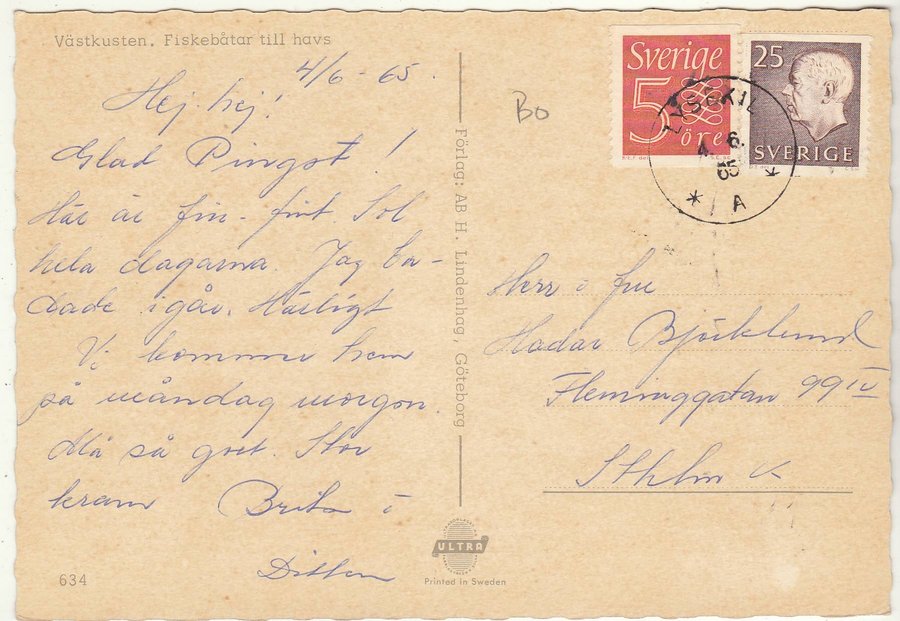 Västkusten. Fiskebåtar till havs
4/6 - 65.
Hej hej!
Glad Pingst!
Här är fin-fint. Sol
hela dagarna. Jag ba-
dade igår. Härligt
Vi kommer hem
på måndag morgon.
Må så gott. Stor
kram Brita o
634
Förlag: AB H. Lindenhag, Göteborg
ULTRA
Printed in Sweden
Bo
Sverige
5
öre
25
SVERIGE
LYSEKIL
4. 6.
65
* A *
Herr o fru
Hadar Björklund
Flemminggatan 99 IV
Sthlm K